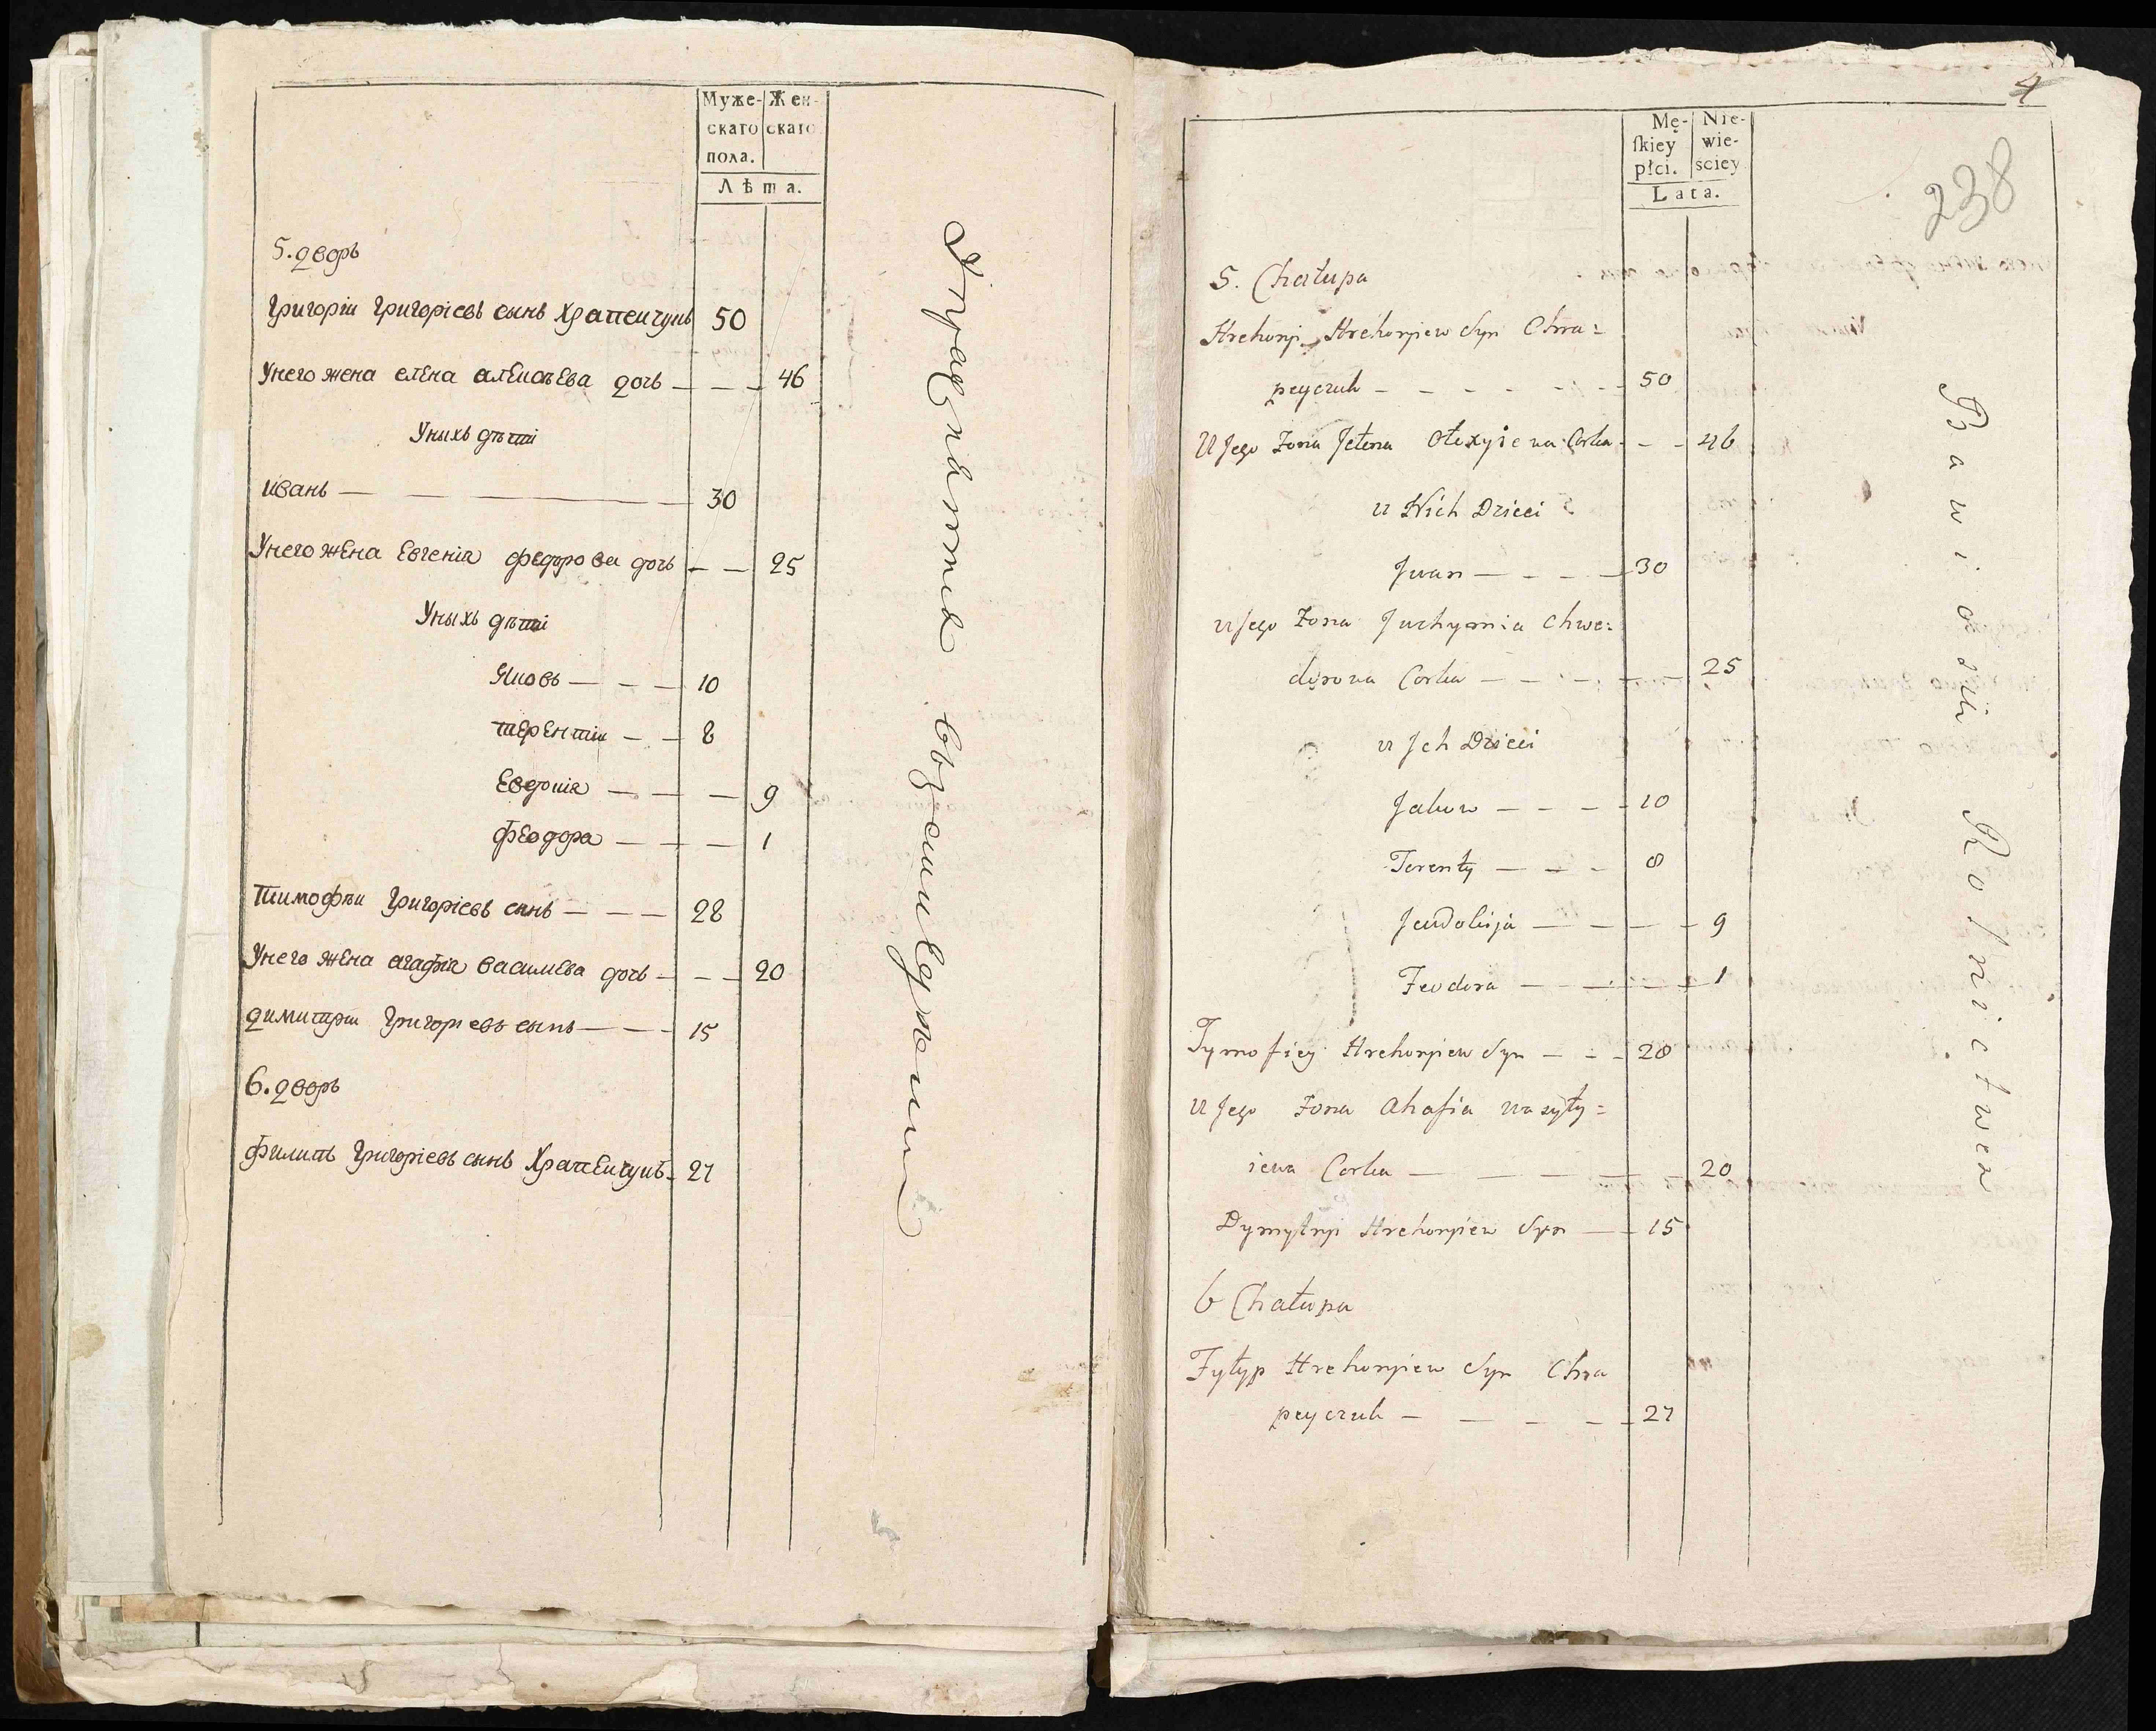 Муже- Жен-
скаго скаго
пола.
Лѣта.
5. дворъ
Григоріи Григоріевъ сынъ Храпеичукъ 50
Унего жена елена алеѯѣева дочь — — — 46
Уныхъ дѣти
иванъ — — — 30
Унего жена Евгенія федорова дочь — — 25
Уныхъ дѣти
Яковъ — — — 10
терентіи — — 8
Евдокія — — — 9
феодора — — — 1
тимофѣи Григоріевъ сынъ — — — 28
Унего жена агафія василиева дочь — — — 20
димитріи Григоріевъ сынъ — — — 15
6. дворъ
филипъ Григоріевъ сынъ Храпеичукъ 27
Упражняются въ земледѣліи
4
238
Mę- Nie-
ſkiey wie-
płci. sciey
Lata.
5. Chałupa
Hrehoryi Hrehoryiew Syn Chra=
peyczuk — — — — — 50
U Jego Żona Jełena Ołexyiewa Corka — — 46
u Nich Dzieci
Jwan — — — — 30
u Jego Żona Juchymia Chwe=
dorowa Corka — — — — 25
u Jch Dzieci
Jakow — — — — 10
Terenty — — — 8
Jewdokija — — — — 9
Feodora — — — — 1
Tymofiey Hrehoryiew Syn — — — 28
U Jego Żona Ahafia Wasyły=
iewa Corka — — — — — 20
Dymytryi Hrehoryiew Syn — — 15
6 Chałupa
Fyłyp Hrehoryiew Syn Chra
peyczuk — — — — 27
Bawi się Rolnictwem